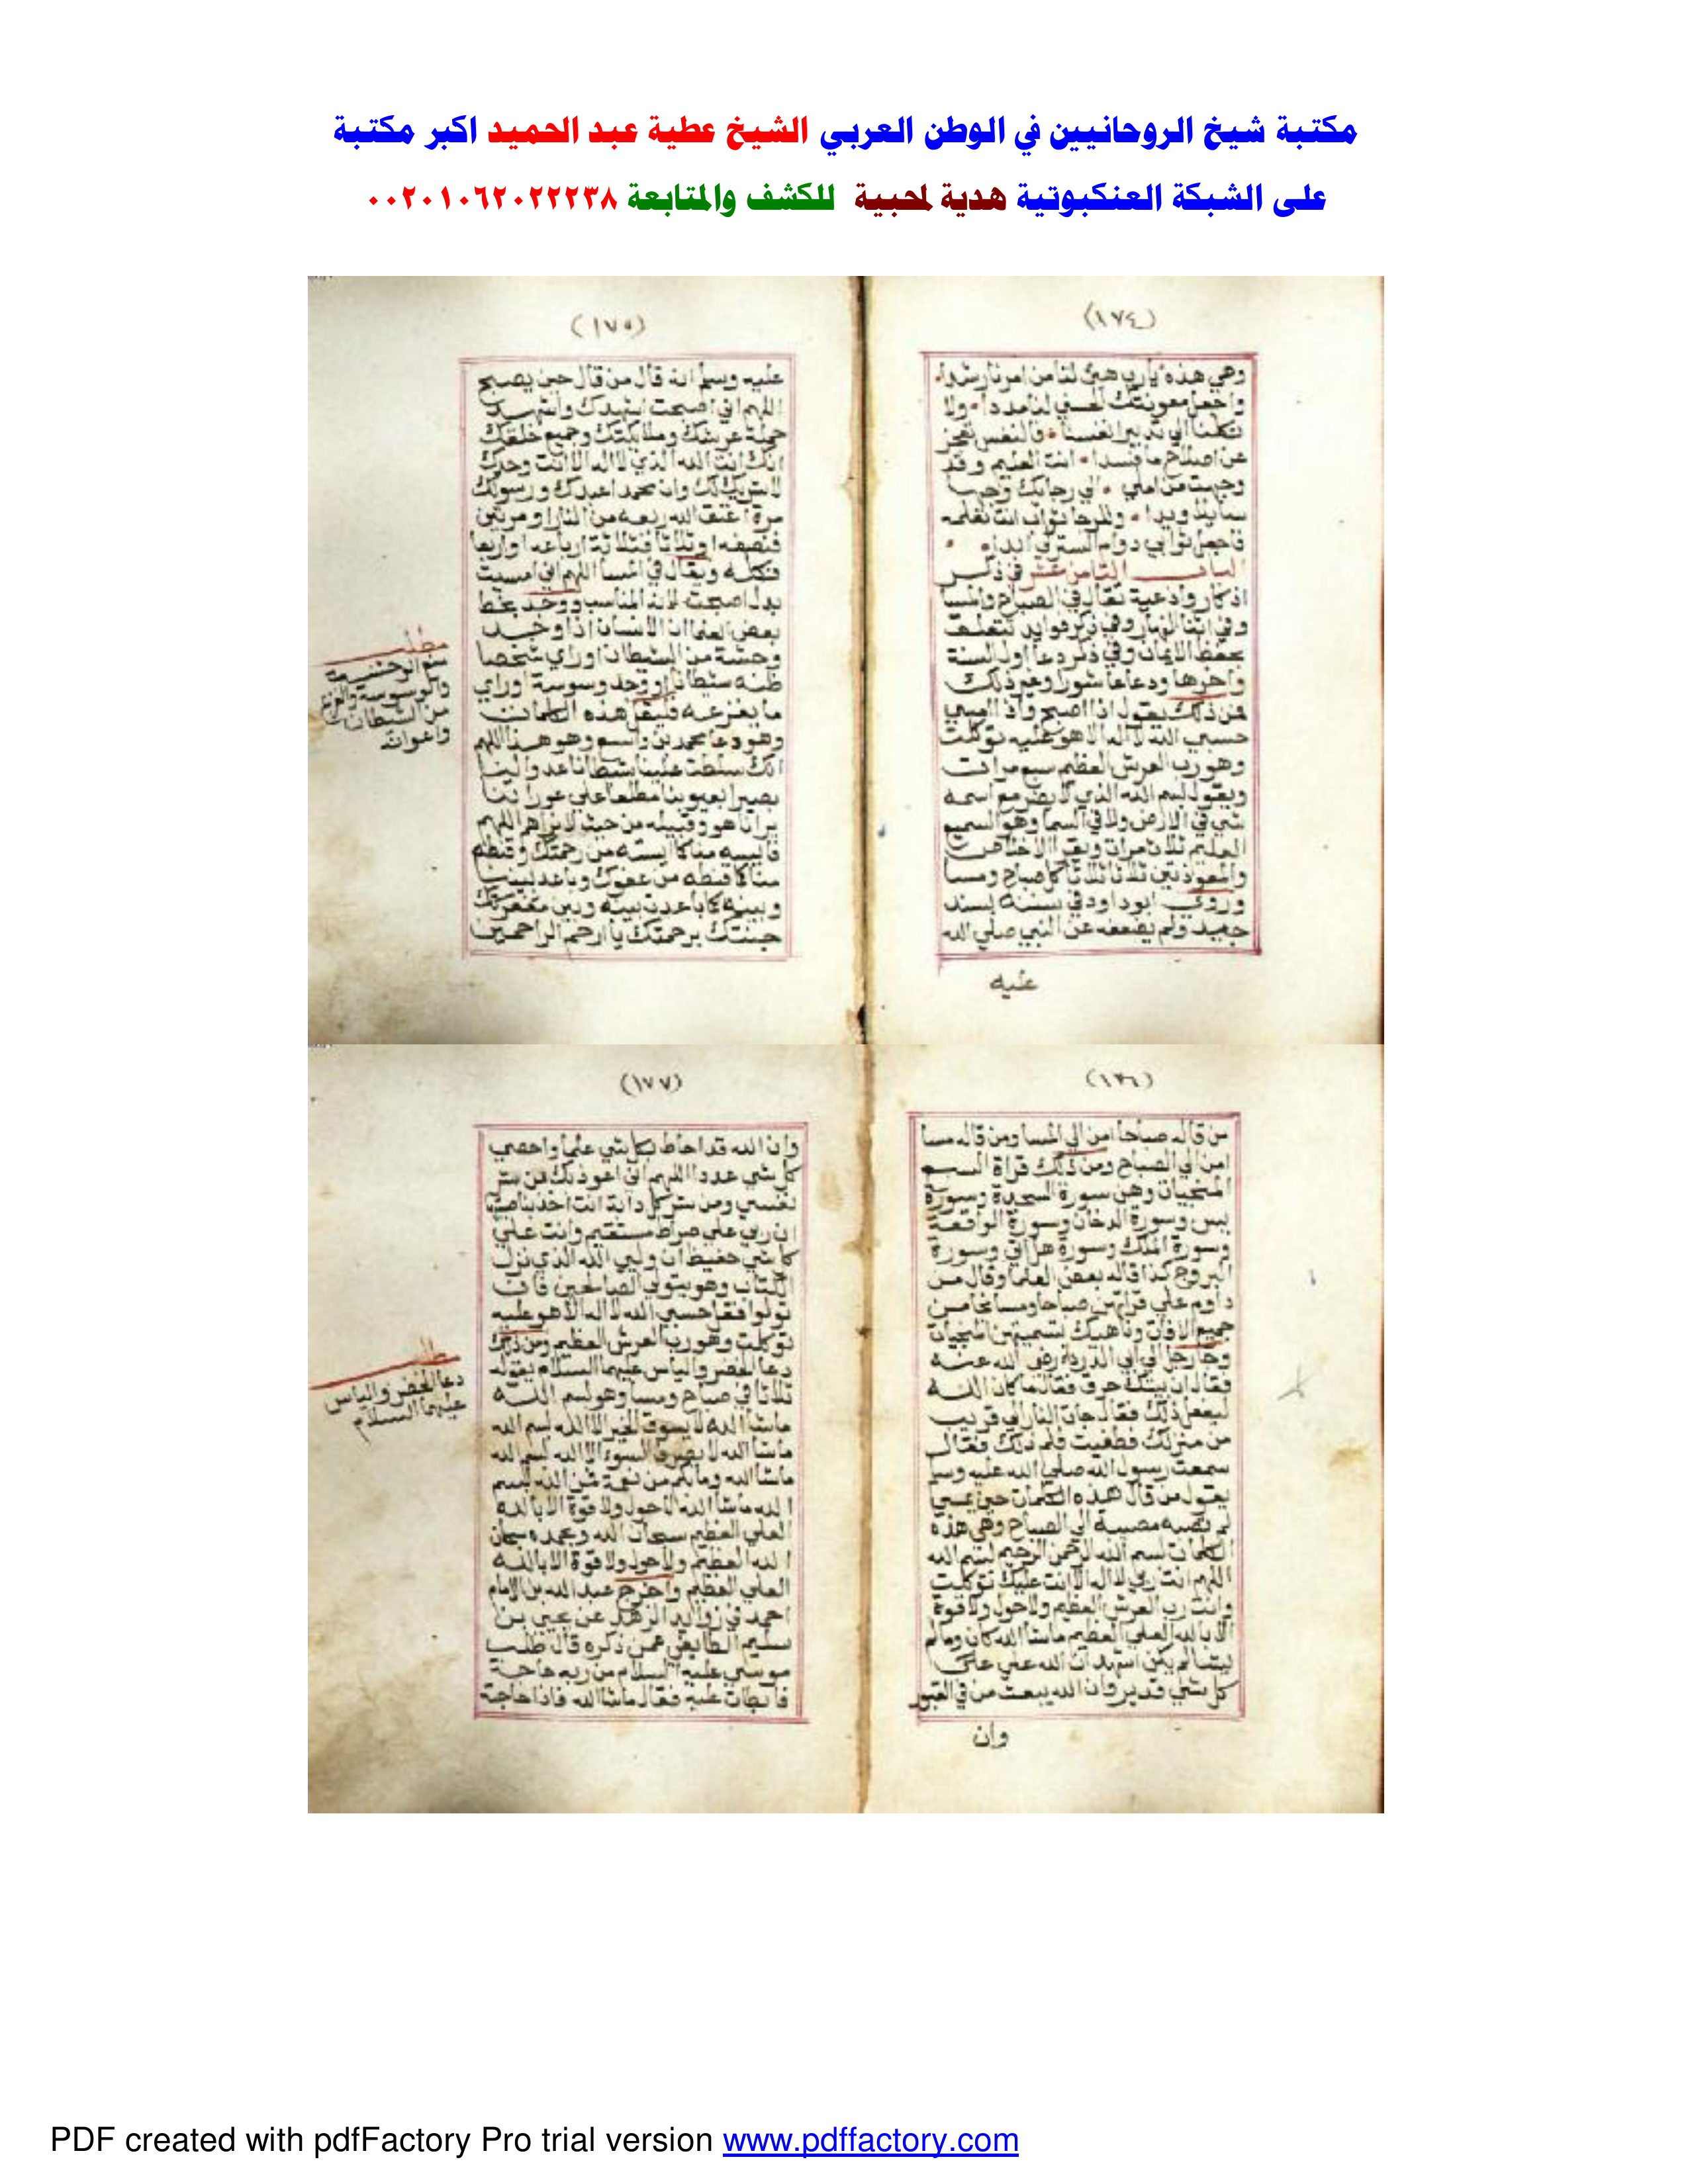 مكتبة شيخ الروحانيين في الوطن العربي الشيخ عطية عبد الحميد اكبر مكتبة
على الشبكة العنكبوتية هدية لمحبية للكشف والمتابعة ٠٠٢٠١٠٦٢٠٢٢٢٣٨
(١٧٤)
وهي هذه يارب هيئ لنا من امرنا رشدا
واجعل معونتك الحسني لنا مددا ولا
تكلنا الي تدبير انفسنا فالنفس تعجز
عن اصلاح ما فسدا انت العليم وقد
وجهت من املي الي رجائك وجها
سايلا ويدا وللرجا ثواب انت تعلمه
فاجعل ثوابي دوام الستر لي ابدا
الباب الثامن عشر في ذكر
اذكار وادعية تقال في الصباح والمسا
وفي اثنا النهار وفي ذكر فوايد تتعلق
بحفظ الايمان وفي ذكر دعا اول السنة
واخرها ودعا عاشورا وغير ذلك
فمن ذلك يقول اذا اصبح واذا امسي
حسبي الله لا اله الا هو عليه توكلت
وهو رب العرش العظيم سبع مرات
ويقول بسم الله الذي لا يضر مع اسمه
شي في الارض ولا في السما وهو السميع
العليم ثلاث مرات ويقرا الاخلاص
والمعوذتين ثلاثا ثلاثا كل صباح ومسا
وروي ابو داود في سننه بسند
جيد ولم يضعفه عن النبي صلي الله
عليه
(١٧٥)
عليه وسلم انه قال من قال حين يصبح
اللهم اني اصبحت اشهدك واشهد
حملة عرشك وملايكتك وجميع خلقك
انك انت الله الذي لا اله الا انت وحدك
لا شريك لك وان محمدا عبدك ورسولك
مرة اعتق الله ربعه من النار او مرتين
فنصفه او ثلاثا فثلاثة ارباعه او اربعا
فكله ويقال في المسا اللهم اني امسيت
بدل اصبحت لانه المناسب ووجد بخط
بعض العلما ان الانسان اذا وجد
وحشة من الشيطان او راي شخصا
ظنه شيطانا او وجد وسوسة او راي
ما يفزعه فليقل هذه الكلمات
وهو دعا محمد بن واسع وهو هذا اللهم
انك سلطت علينا شيطانا عدوا لينا
بصيرا بعيوبنا مطلعا علي عوراتنا
يرانا هو وقبيله من حيث لا نراهم اللهم
فايسه منا كما ايسته من رحمتك وقنطه
منا كما قنطه من عفوك وباعد بيننا
وبينه كما باعدت بينه وبين مغفرتك
جنتك برحمتك يا ارحم الراحمين
مطلب
والوسوسة والفزع
من الشيطان
واعوانه
(١٧٦)
من قاله صباحا امن الي المسا ومن قاله مسا
امن الي الصباح ومن ذلك قراة السبع
المنجيات وهن سورة السجدة وسورة
يس وسورة الدخان وسورة الواقعة
وسورة الملك وسورة هل اتي وسورة
البروج كذا قاله بعض العلما وقال من
داوم علي قراتهن صباحا ومسا نجا من
جميع الافات وناهيك بتسميتهن المنجيات
وجا رجل الي ابي الدرداء رضي الله عنه
فقال ان بيتك حرق فقال ما كان الله
ليفعل ذلك فقال جات النار الي قريب
من منزلك فطفيت فلم ذلك فقال
سمعت رسول الله صلي الله عليه وسلم
يقول من قال هذه الكلمات حين يمسي
لم تصبه مصيبة الي الصباح وهي هذه
الكلمات بسم الله الرحمن الرحيم بسم الله
اللهم انت ربي لا اله الا انت عليك توكلت
وانت رب العرش العظيم ولا حول ولا قوة
الا بالله العلي العظيم ما شا الله كان وما لم
يشا لم يكن اشهد ان الله علي
كل شي قدير وان الله يبعث من في القبور
وان
(١٧٧)
وان الله قد احاط بكل شي علما واحصي
كل شي عددا اللهم اني اعوذ بك من شر
نفسي ومن شر كل دابة انت اخذ بناصيتها
ان ربي علي صراط مستقيم وانت علي
كل شي حفيظ ان وليي الله الذي نزل
الكتاب وهو يتولي الصالحين فان
تولوا فقل حسبي الله لا اله الا هو عليه
توكلت وهو رب العرش العظيم ومن ذلك
دعا الخضر والياس عليهما السلام يقوله
ثلاثا في صباح ومسا وهو بسم الله
ما شا الله لا يسوق الخير الا الله بسم الله
ما شا الله لا يصرف السوء الا الله بسم الله
ما شا الله وما بكم من نعمة فمن الله بسم
الله ما شا الله لا حول ولا قوة الا بالله
العلي العظيم سبحان الله وبحمده سبحان
الله العظيم ولا حول ولا قوة الا بالله
العلي العظيم واخرج عبد الله بن الامام
احمد في زوايد الزهد عن يحيي بن
سليم الطايفي عمن ذكره قال طلب
موسي عليه السلام من ربه حاجة
فابطات عليه فقال ما شا الله فاذا حاجته
دعا الخضر والياس
عليهما السلام
PDF created with pdfFactory Pro trial version www.pdffactory.com